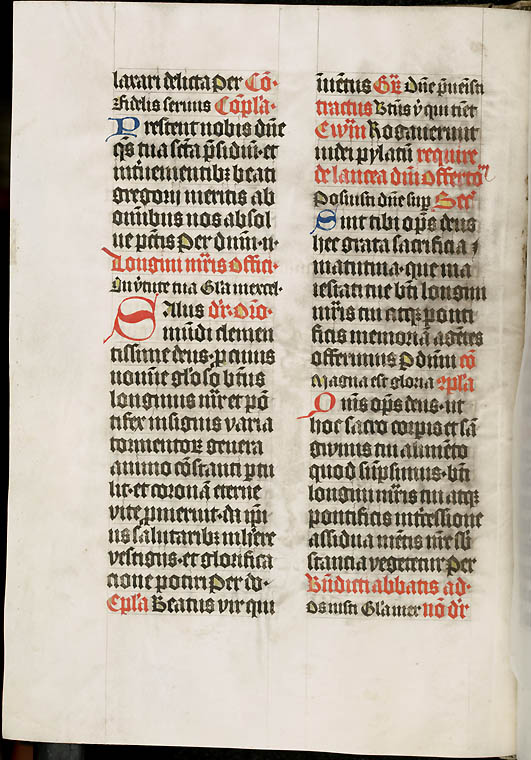 laxari delicta Per Cō·
Fidelis seruus Cōpla·
Prestent nobis dn̄e
q̄s tua sc̄ta p̄sidiū· et
interuenientibꝫ beati
gregorij meritis ab
om̄ibus nos absol
ue pctīs Per dnm̄·n·
Longini mr̄is Offici·
In v̓tute tua Gła mercel·
Salus dr̄· Oro·
mūdi clemen
tissime deus· p cuius
nomīe glōso btūs
longinus mr̄ et pō
tifex insignis varia
tormentoꝝ genera
animo cōstanti ptu
lit· et coronā eterne
vite p̄meruit· da ipī
us salutaribꝫ insistere
vestigijs· et glorifica
cione potiri Per do·
Epl̄a Beatus vir qui
inuētus Gr̄ Dn̄e p̄uenisti
tractus Btūs v̓ qui timet
Ewm̄ Rogauerunt
iudei pylatū require
de lancea dnī Offertoꝝ
Posuisti dn̄e sup Secr̄
Sint tibi op̄s deus
hec grata sacrificia ⁊
matutina· que ma
iestati tue bt̄i longini
mr̄is tui atqꝫ ponti
ficis memoriā agētes
offerimus P dnm̄ cō
Magna est gloria 9pl̄a
Om̄s op̄s deus· ut
hoc sacro corpis et sā
gwinis tui alimēto
quod sūpsimus· bt̄i
longini mr̄is tui atqꝫ
pontificis int̓cessione
assidua mētis nr̄e sb̄
stantia vegetetur Per
Bn̄dicti abbatis ad·
Os iusti Gła iuer nō dr̄